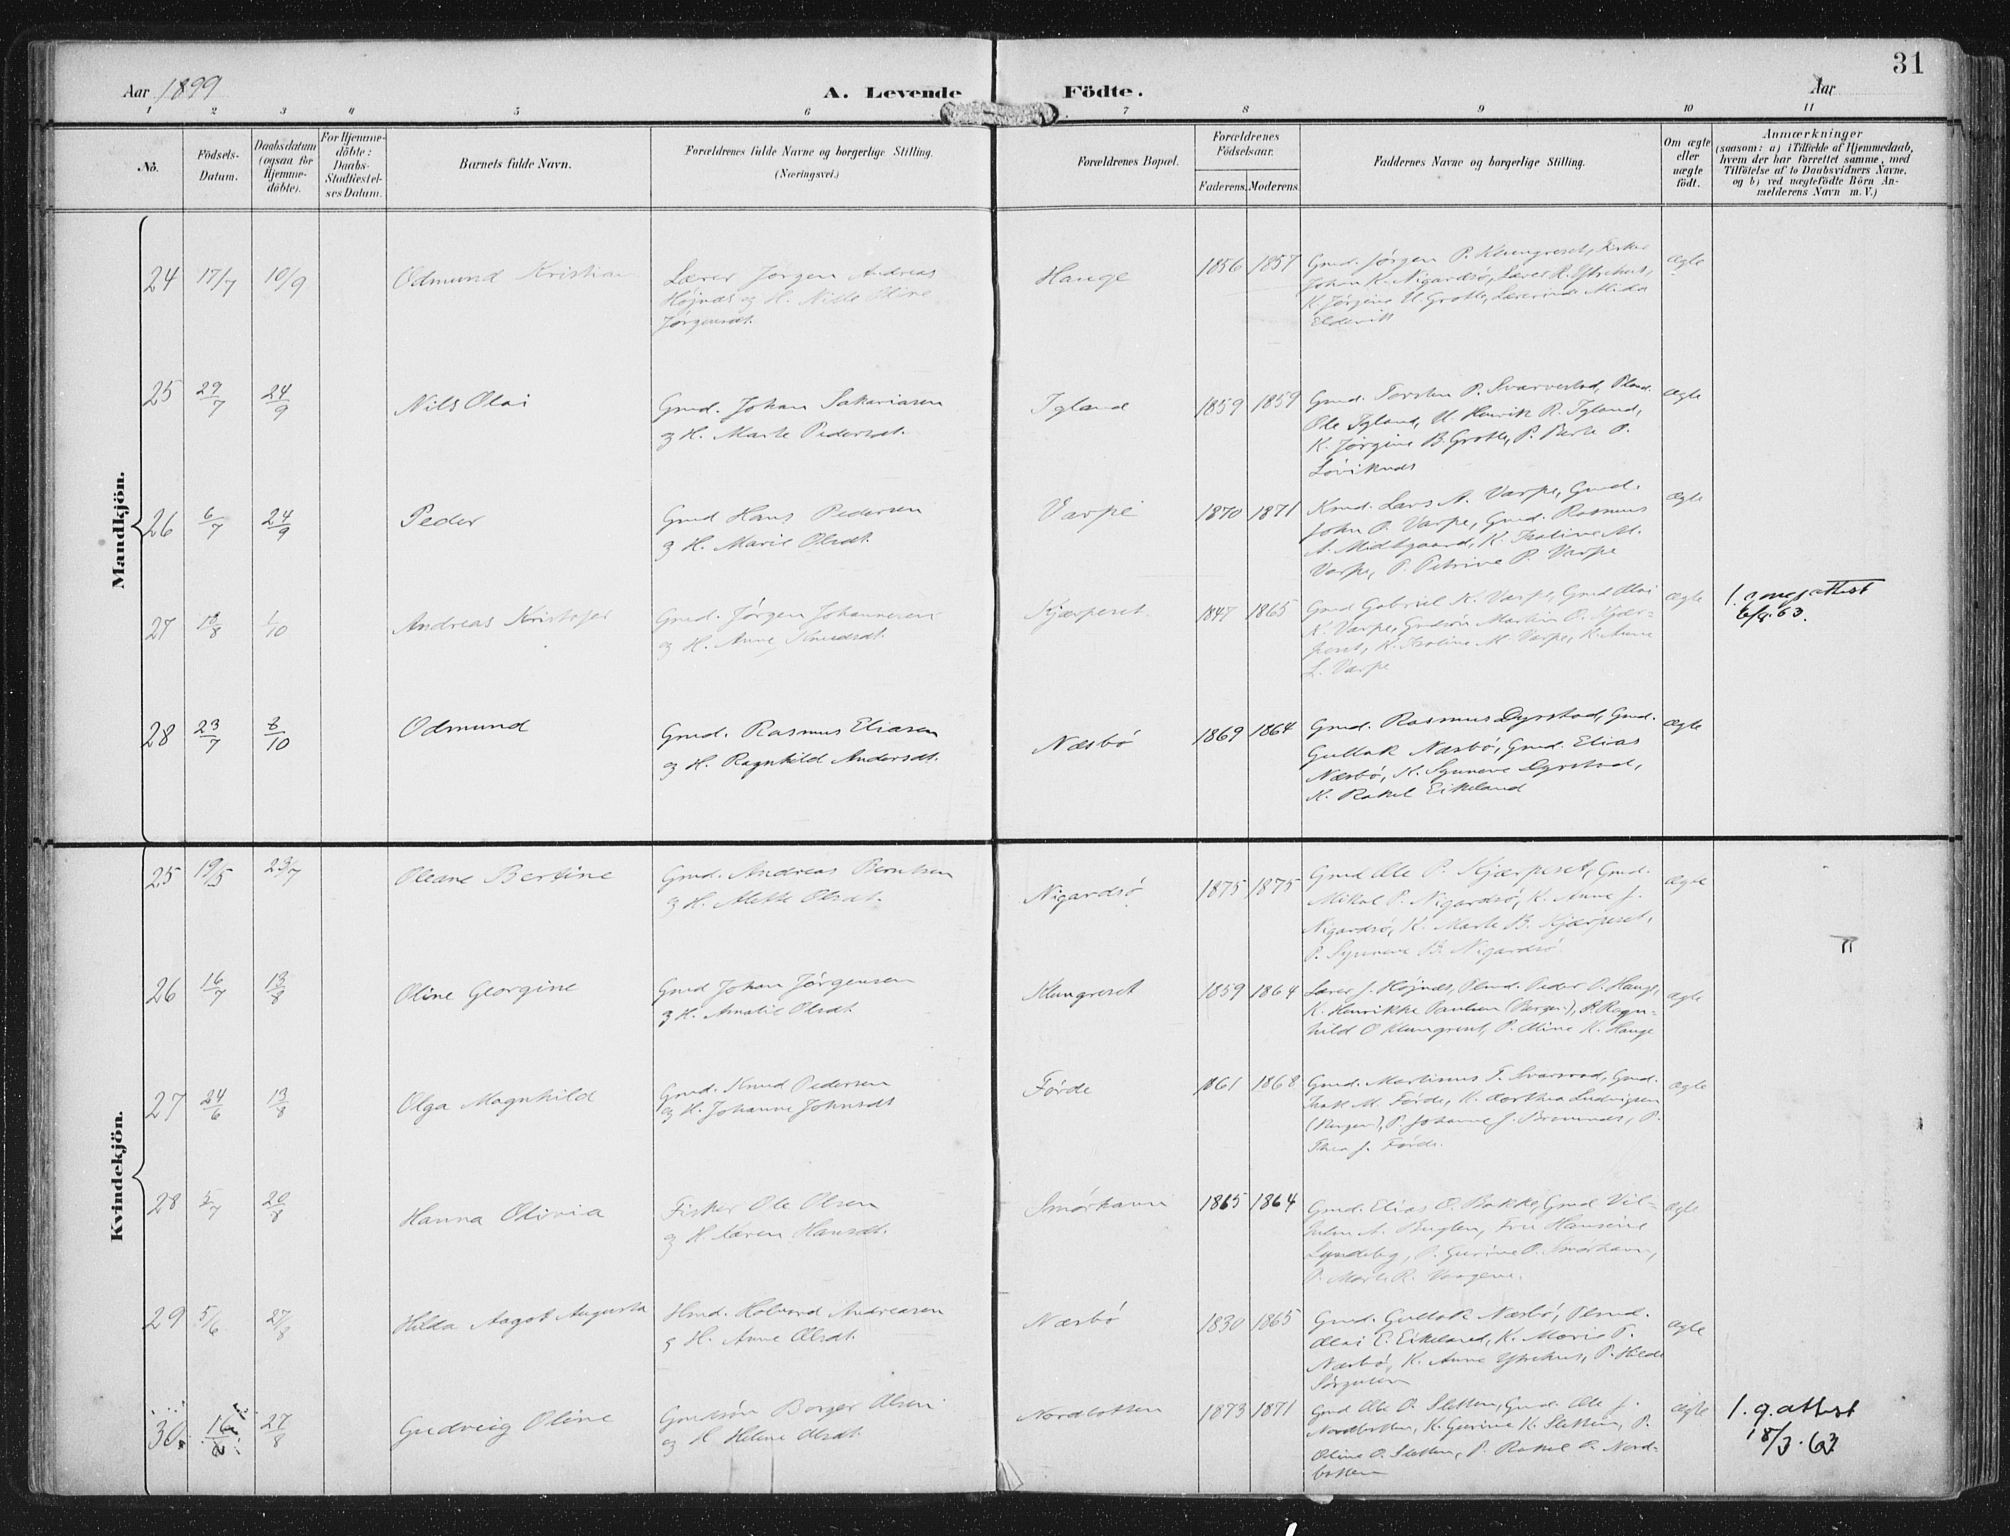 31
Aar 1899
A. Levende
Födte.
Aar
1 2 3 4 5 6 7 8 9 10 11
No.
Födsels-
Datum.
Daabsdatum
(ogsaa for
Hjemme-
döbte).
For Hjemme-
döbte:
Daabs-
Stadfæstel-
ses Datum.
Barnets fulde Navn.
Forældrenes fulde Navne og borgerlige Stilling.
(Næringsvei.)
Forældrenes Bopæl.
Forældrenes
Födselsaar.
Faderens. Moderens.
Faddernes Navne og borgerlige Stilling.
Om ægte
eller
uægte
födt.
Anmærkninger
(saasom: a) i Tilfælde af Hjemmedaab,
hvem der har forrettet samme, med
Tilföielse af to Daabsvidners Navne,
og b) ved uægtefödte Börn An-
melderens Navn m. V.)
Mandkjön.
24 17/7 10/9 Odmund Kristian
Lærer Jørgen Andreas
Højnæs og H. Nille Oline
Jørgensdt.
Hauge
1856 1857
Gmd. Jørgen P. Klungreset, Fisker
Johan K. Nigardsø, Lærer R. Ytrehus,
K. Jørgine U. Grotle, Lærerinde Mida
Eldevik
ægte
25 29/7 24/9 Nils Olai
Gmd. Johan Sakariasen
og H. Marte Pedersdt.
Igland
1859 1859
Gmd. Torsten P. Svarvestad, Plmd.
Ole Igland, U. Henrik R. Igland,
K. Jørgine B. Grotle, P. Berte P.
Løviknes
ægte
26 6/7 24/9 Peder
Gmd Hans Pedersen
og H. Marie Olsdt.
Varpe
1870 1871
Kmd. Lars A. Varpe, Gmd.
John O. Varpe, Gmd. Rasmus
A. Midtgaard, K. Iraline M.
Varpe, P. Petrine P. Varpe
ægte
27 18/8 1/10 Andreas Kristofer
Gmd. Jørgen Johannesen
og H. Anne Knudsdt.
Kjærpeset
1847 1865
Gmd Gabriel K. Varpe, Gmd Olai
K. Varpe, Gmdsøn Martin O. Kjær-
peset, K. Iraline M. Varpe, K. Anne
L. Varpe
ægte
28 23/7 8/10 Odmund
Gmd. Rasmus Eliasen
og H. Ragnhild Andersdt.
Næsbø
1869 1864
Gmd. Rasmus Dyrstad, Gmd.
Gullak Næsbø, Gmd. Elias
Næsbø, K. Synneve Dyrstad,
K. Rakel Eikeland
ægte
Kvindekjön.
25 19/5 23/7 Oleane Bertine
Gmd. Andreas Berntsen
og H. Alette Olsdt.
Nigardsø
1875 1875
Gmd Ole P. Kjærpeset, Gmd.
Mikal P. Nigardsø, K. Anne J.
Nigardsø, K. Marte B. Kjærpeset,
P. Synneve B. Nigardsø
ægte
26 16/7 13/8 Oline Georgine
Gmd Johan Jørgensen
og H. Amalie Olsdt.
Klungreset
1859 1864
Lærer J. Højnæs, Plmd. Peder O. Hauge,
K. Henrikke Paulsen (Bergen), P. Ragn-
hild O Klungreset, P. Oline K. Hauge
ægte
27 24/6 13/8 Olga Magnhild
Gmd. Knud Pedersen
og H. Johanne Johnsdt
Førde
1861 1868
Gmd. Martinus T. Svarstad, Gmd.
M. Førde, K. Dorthea Ludvigsen
(Bergen), P. Johanne J. P.
Thea J. Førde.
ægte
28 5/7 20/8 Hanna Olivia
Fisker Ole Olsen
og H. Karen Hansdt.
Smørhavn
1865 1864
Gmd. Elias O. Bakke, Gmd Vil-
helm A. Frue Hansine
Lyndeberg, P. Gurine O. Smørhavn,
P. Marte R. Vaagene.
ægte
29 5/6 27/8 Hilda Aagot Augusta
Hmd. Halvard Andreasen
og H. Anne Olsdt.
Næsbø
1830 1865
Gmd. Gullak Næsbø, Plmd.
Olai E. Eikeland, K. Marie T.
Næsbø, K. Anne Ytrehus, P. Hilda
Jørgensen
ægte
30 16/ 27/8 Gudveig Oline
Gmdsøn Borger Olsen
og H Helene Olsdt.
Nordbotten
1873 1871
Gmd Ole O. Sletten, Gmd. Ole J.
Nordbotten, K. Gurine K. Sletten, P.
Oline O. Sletten, P. Rakel O. Nord-
botten
ægte
1. g. attest
18/3. 63